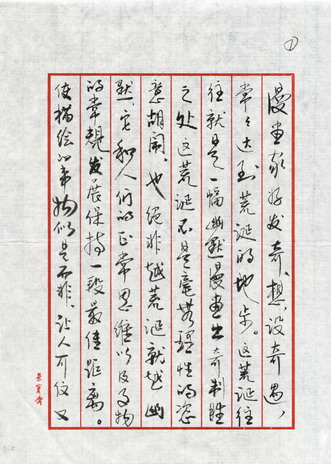 ①
漫画家好发奇想,设奇遇,
常常达到荒诞的地步。这荒诞往
往就是一幅幽默漫画出奇制胜
之处这荒诞不是毫无理性的恣
意胡闹,也绝非越荒诞就越幽
默,它和人们的正常思维以及事物
的常规发展保持一段最佳距离。
使描绘的事物似是而非,让人可信又